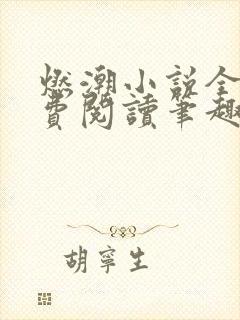 燃潮小說全
費閱讀筆趣
胡寧生